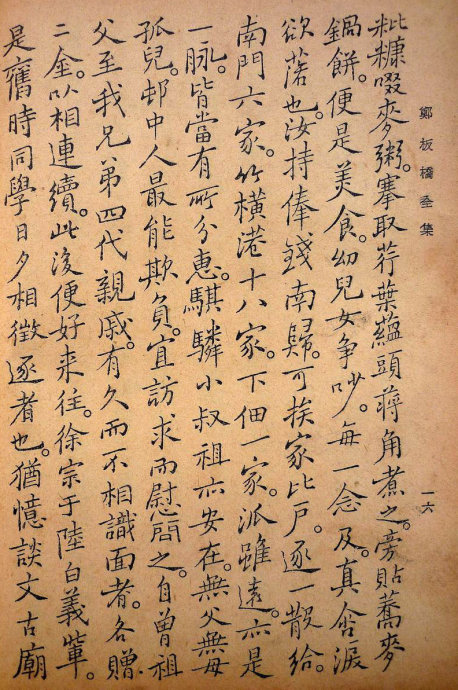 鄭板橋全集
一六
粃糠啜麥粥。搴取荇葉蘊頭蔣角煮之。旁貼蕎麥
鍋餅。便是美食。幼兒女争吵。每一念及。真含淚
欲落也。汝持俸錢南歸。可挨家比戶。逐一散給。
南門六家。竹橫港十八家。下佃一家。派雖遠。亦是
一脉。皆當有所分惠。騏驎小叔祖亦安在。無父無母
孤兒。邨中人最能欺負。宜訪求而慰問之。自曾祖
父至我兄弟四代親戚。有久而不相識面者。各贈
二金。以相連續。此後便好来往。徐宗于陸白義輩。
是舊時同學日夕相徵逐者也。猶憶談文古廟